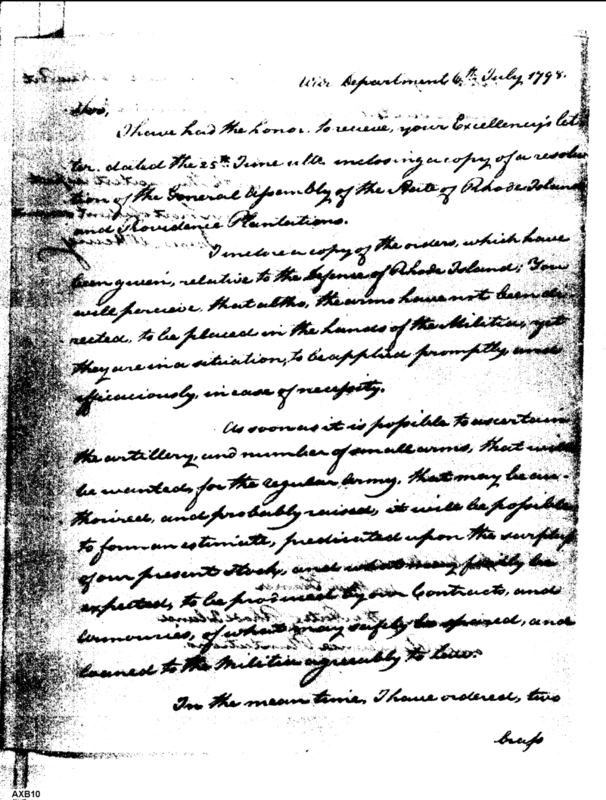 War Department 6th July 1798.
Sir,
I have had the honor to receive, your Excellency's let-
ter dated the 25th June ulto. inclosing a copy of a resolu
tion of the General Assembly of the State of Rhode Island
and Providence Plantations.
I inclose a copy of the orders, which have
been given, relative to the defense of Rhode Island; You
will perceive, that altho, the arms have not been di-
rected, to be placed in the hands of the Militia, yet
they are in a situation, to be applied promptly, and
efficaciously, in case of necessity.
As soon as it is possible to ascertain
the artillery, and number of small arms, that will
be wanted, for the regular Army, that may be au-
thorized, and probably raised, it will be possible
to form an estimate, predicated upon the surplus
of our present stock, and what may be
expected, to be produced by our Contracts, and
armouries, of what may safely be spared, and
loaned to the Militia agreeably to law.
In the mean time, I have ordered, two
brass
AXB10